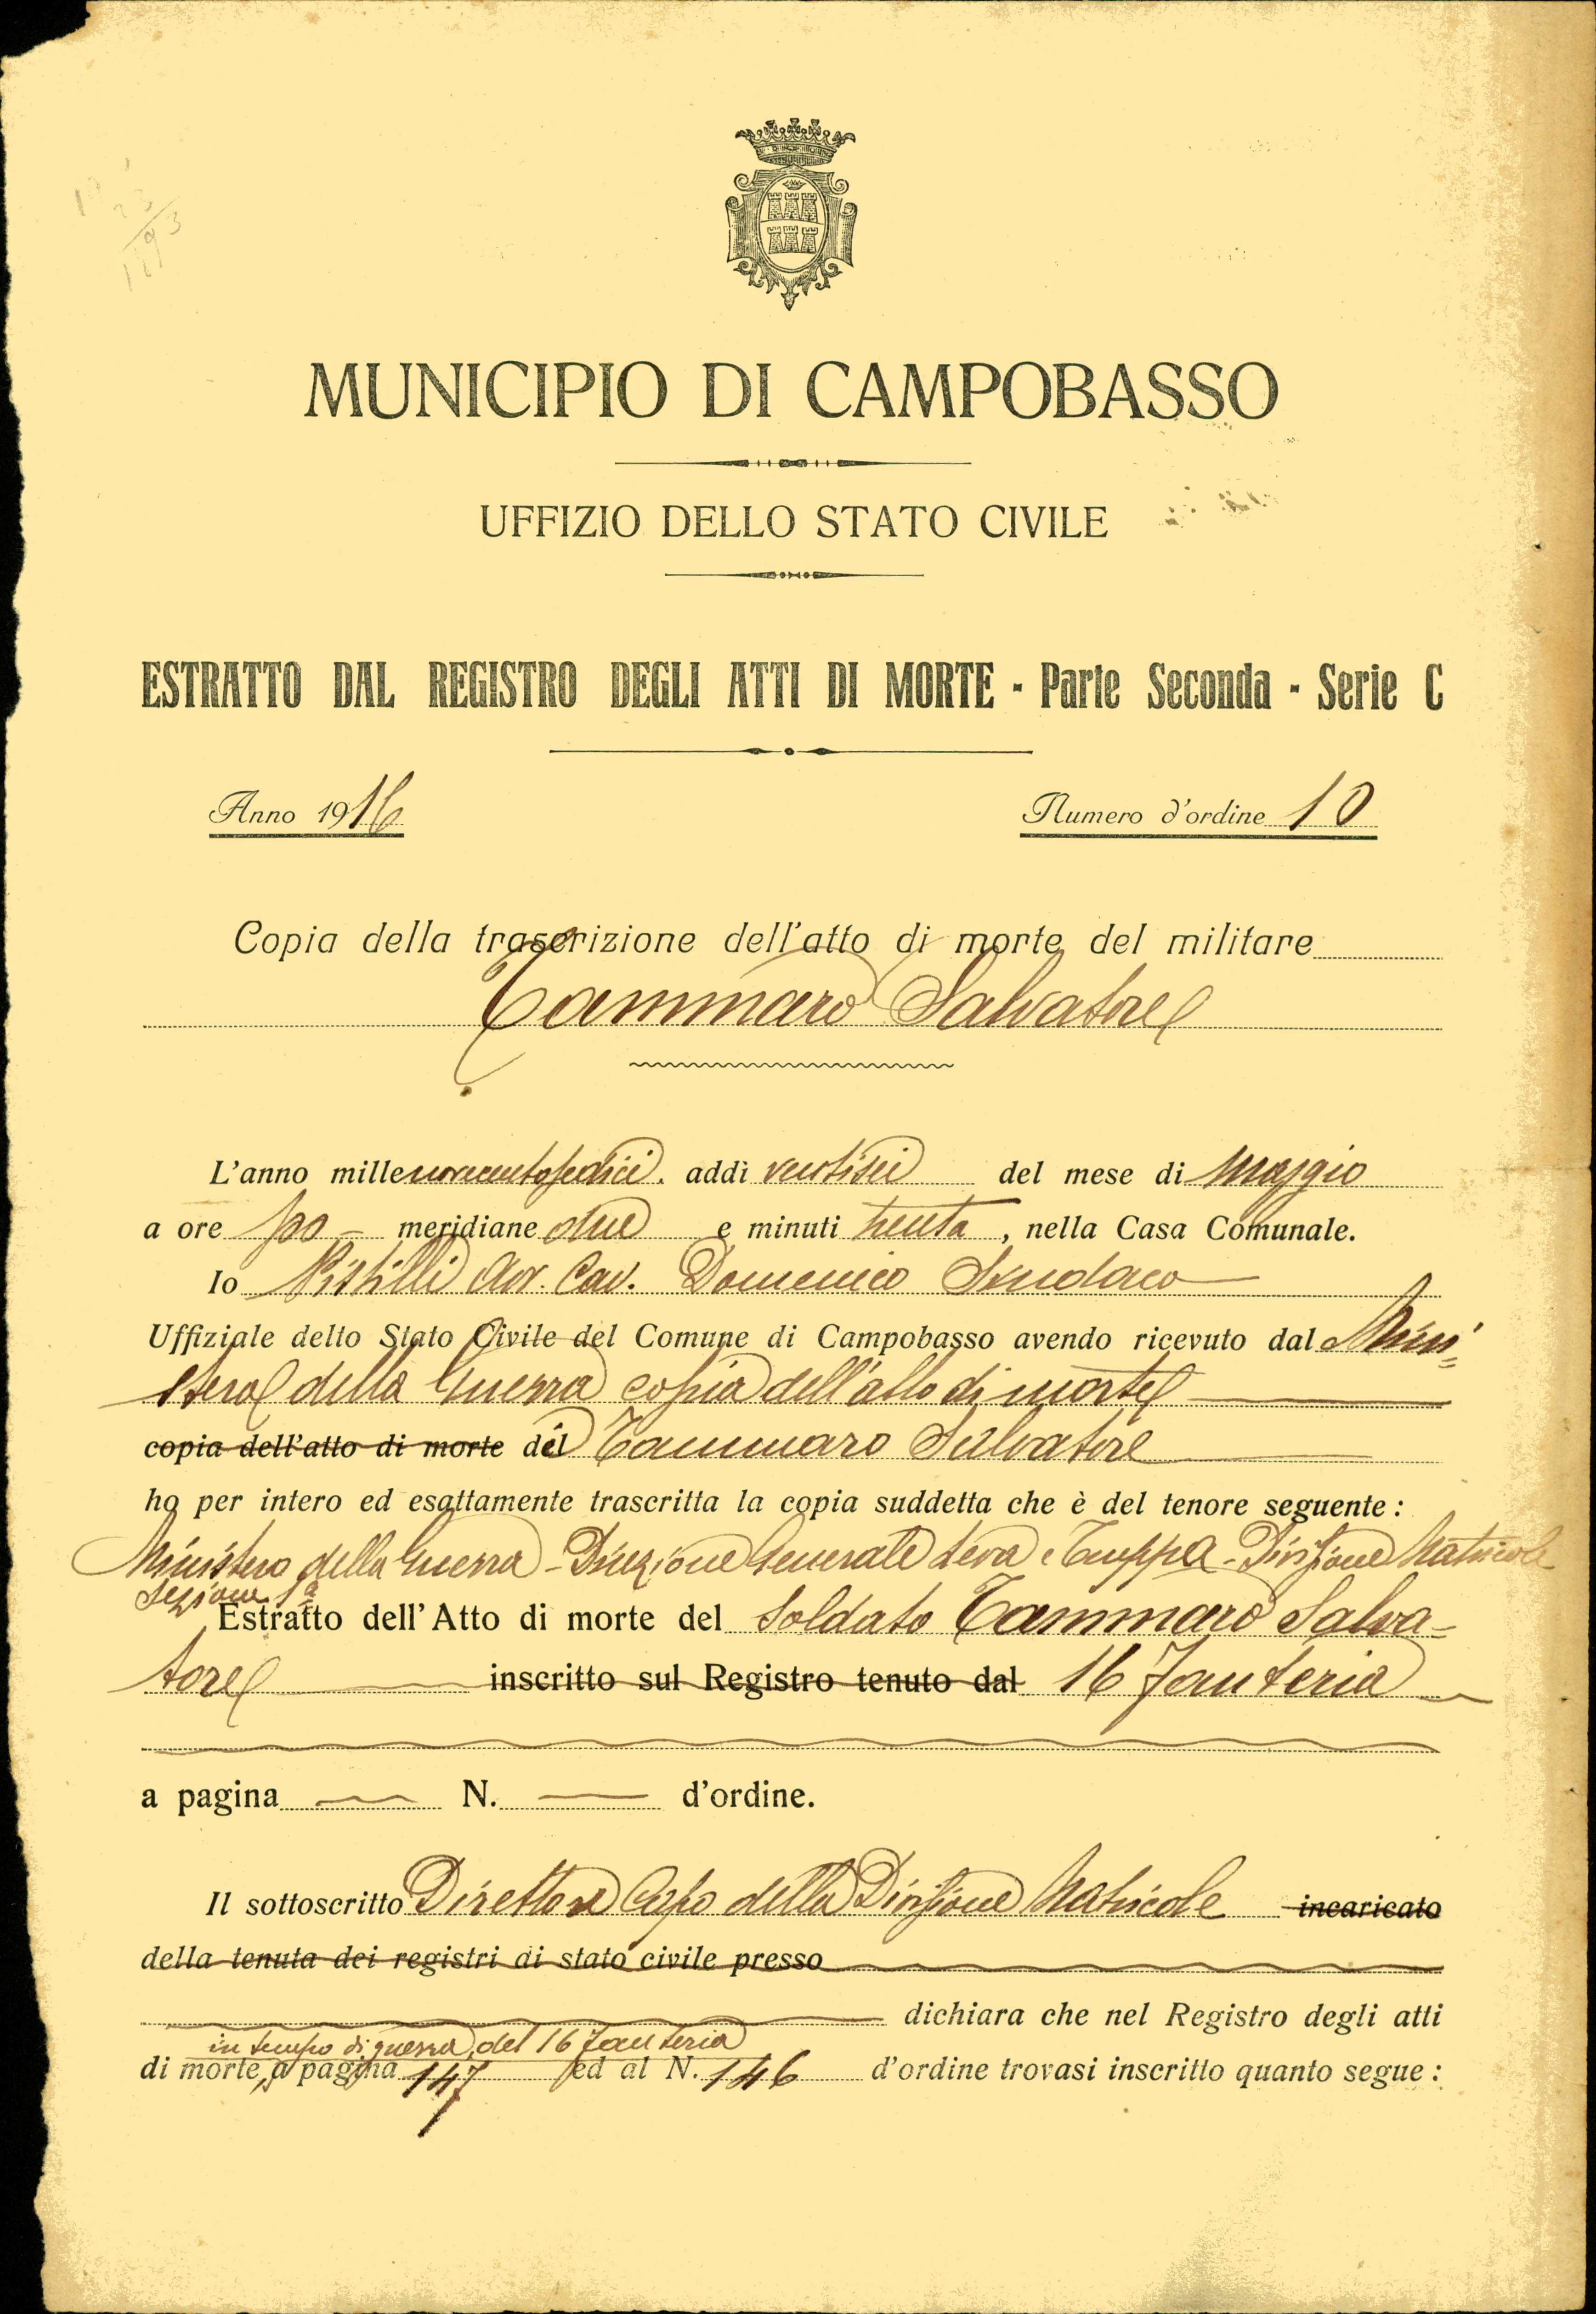 MUNICIPIO DI CAMPOBASSO
UFFIZIO DELLO STATO CIVILE
ESTRATTO DAL REGISTRO DEGLI ATTI DI MORTE - Parte Seconda - Serie C
Anno 1916 Numero d'ordine 10
Copia della trascrizione dell'atto di morte del militare
Tammaro Salvatore
L'anno millenovecentosedici. addì ventisei del mese di Maggio
a ore po- meridiane due e minuti trenta, nella Casa Comunale.
Io Pistilli Avv. Cav. Domenico Sindaco
Uffiziale dello Stato Civile del Comune di Campobasso avendo ricevuto dal Mini=
stero della Guerra copia dell'atto di morte
copia dell'atto di morte del Tammaro Salvatore
ho per intero ed esattamente trascritta la copia suddetta che è del tenore seguente:
Ministero della Guerra - Direzione Generale Leva e Truppa - Divisione Matricole
Sezione 1ª
Estratto dell'Atto di morte del Soldato Tammaro Salva=
tore inscritto sul Registro tenuto dal 16 Fanteria
a pagina N. d'ordine.
Il sottoscritto Direttore Capo della Divisione Matricole incaricato
della tenuta dei registri di stato civile presso
dichiara che nel Registro degli atti
in tempo di guerra, del 16 Fanteria
di morte, a pagina 147 ed al N. 146 d'ordine trovasi inscritto quanto segue: